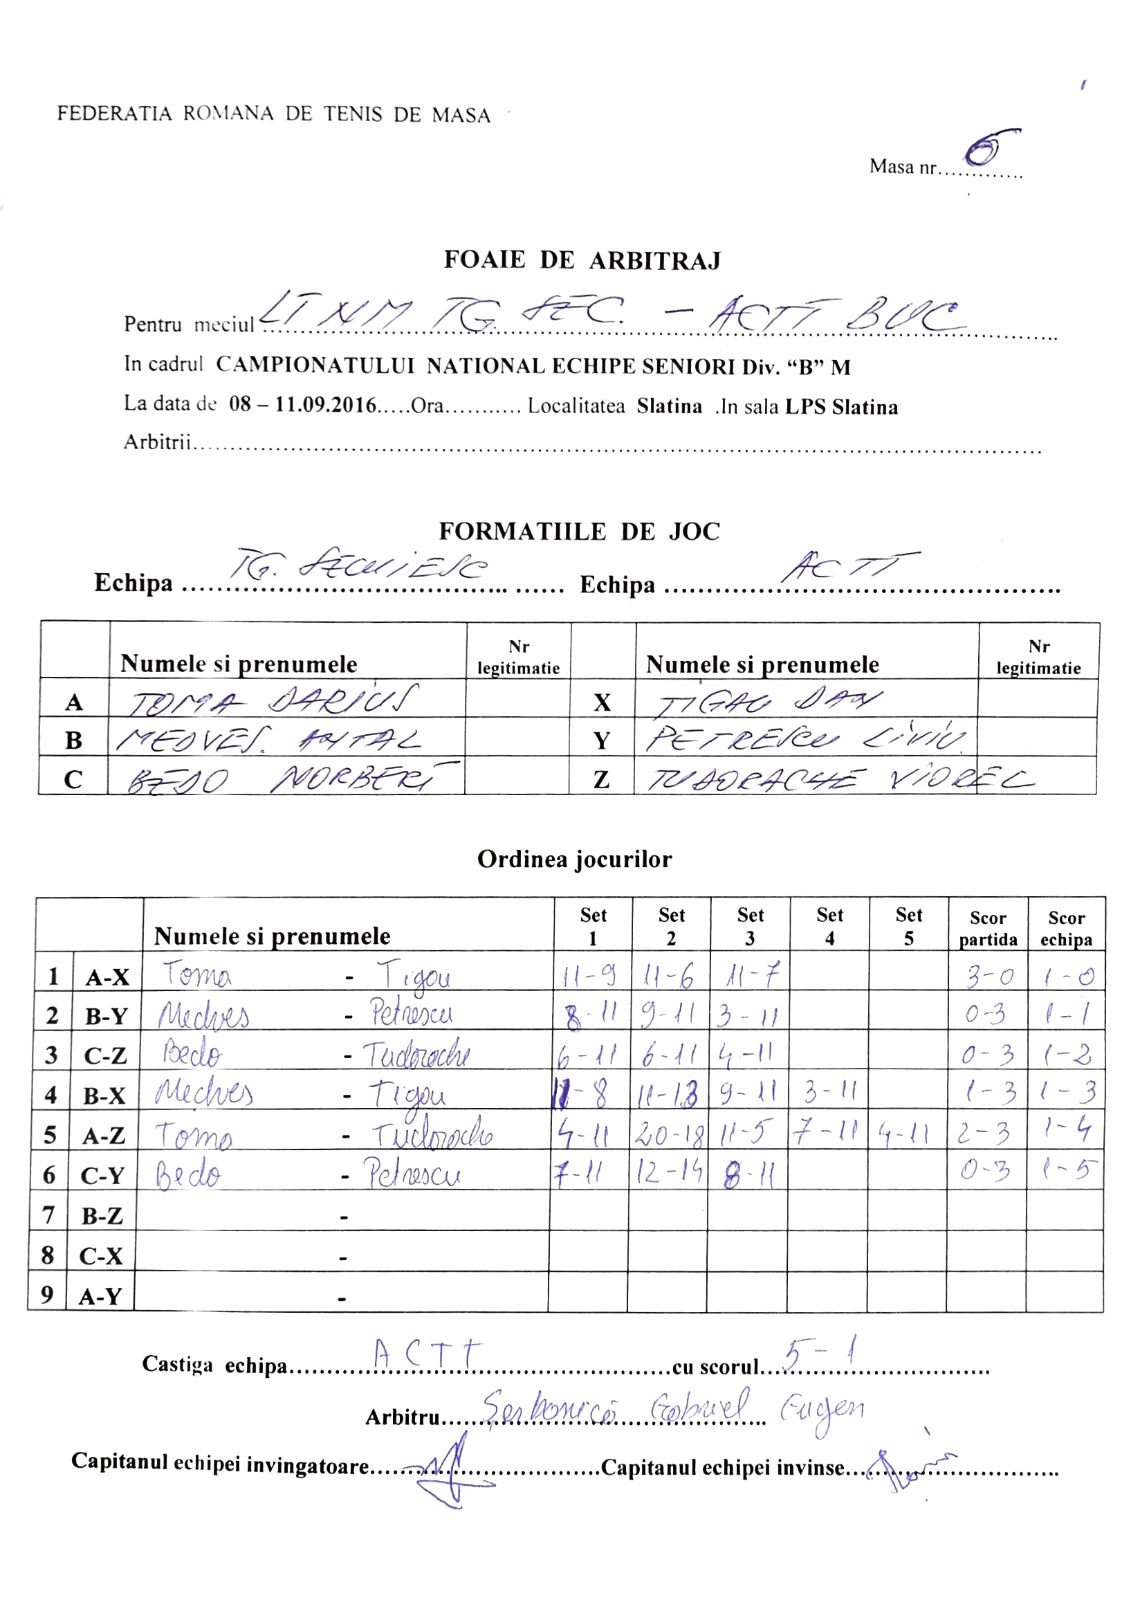 FEDERATIA ROMANA DE TENIS DE MASA
Masa nr.............. 6
FOAIE DE ARBITRAJ
Pentru meciul LT NM TG. SEC. – ACTT BUC
In cadrul CAMPIONATULUI NATIONAL ECHIPE SENIORI Div. “B” M
La data de 08 – 11.09.2016.....Ora........... Localitatea Slatina .In sala LPS Slatina
Arbitrii....................
FORMATIILE DE JOC
Echipa TG. SECUIESC Echipa ACTT
Numele si prenumele Nr legitimatie Numele si prenumele Nr legitimatie
A TOMA DARIUS X TIGAU DAN
B MEDVES. ANTAL Y PETRESCU LIVIU
C BEDO NORBERT Z TUDORACHE VIOREL
Ordinea jocurilor
Numele si prenumele Set 1 Set 2 Set 3 Set 4 Set 5 Scor partida Scor echipa
1 A-X Toma - Tigau 11-9 11-6 11-7 3-0 1-0
2 B-Y Medves - Petrescu 8-11 9-11 3-11 0-3 1-1
3 C-Z Bedo - Tudorache 6-11 6-11 4-11 0-3 1-2
4 B-X Medves - Tigau 11-8 11-13 9-11 3-11 1-3 1-3
5 A-Z Toma - Tudorache 4-11 20-18 11-5 7-11 4-11 2-3 1-4
6 C-Y Bedo - Petrescu 7-11 12-14 8-11 0-3 1-5
7 B-Z -
8 C-X -
9 A-Y -
Castiga echipa ACTT cu scorul 5-1
Arbitru Gabriel Eugen
Capitanul echipei invingatoare.......... Capitanul echipei invinse..........